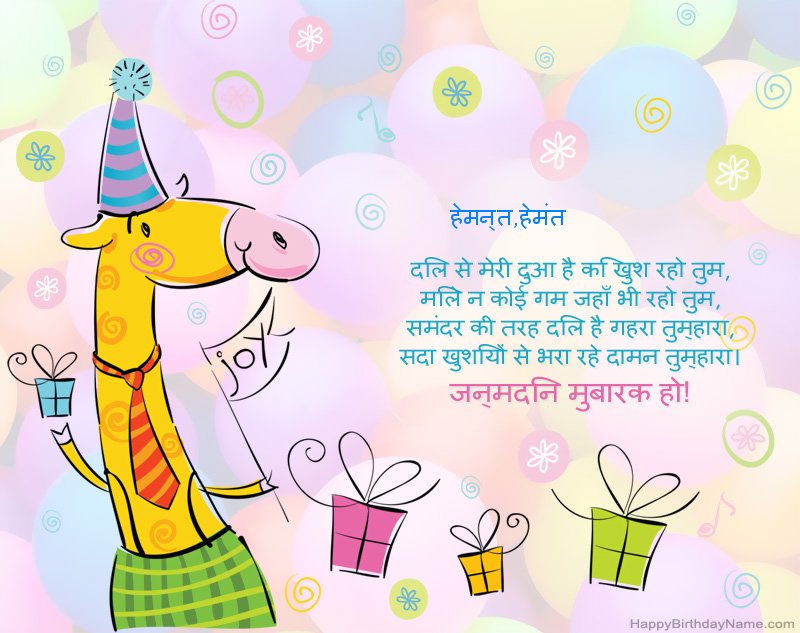 हेमन्त,हेमंत
दिल से मेरी दुआ है कि खुश रहो तुम,
मिले न कोई गम जहाँ भी रहो तुम,
समंदर की तरह दिल है गहरा तुम्हारा,
सदा खुशियों से भरा रहे दामन तुम्हारा।
जन्मदिन मुबारक हो!
joy
HappyBirthdayName.com